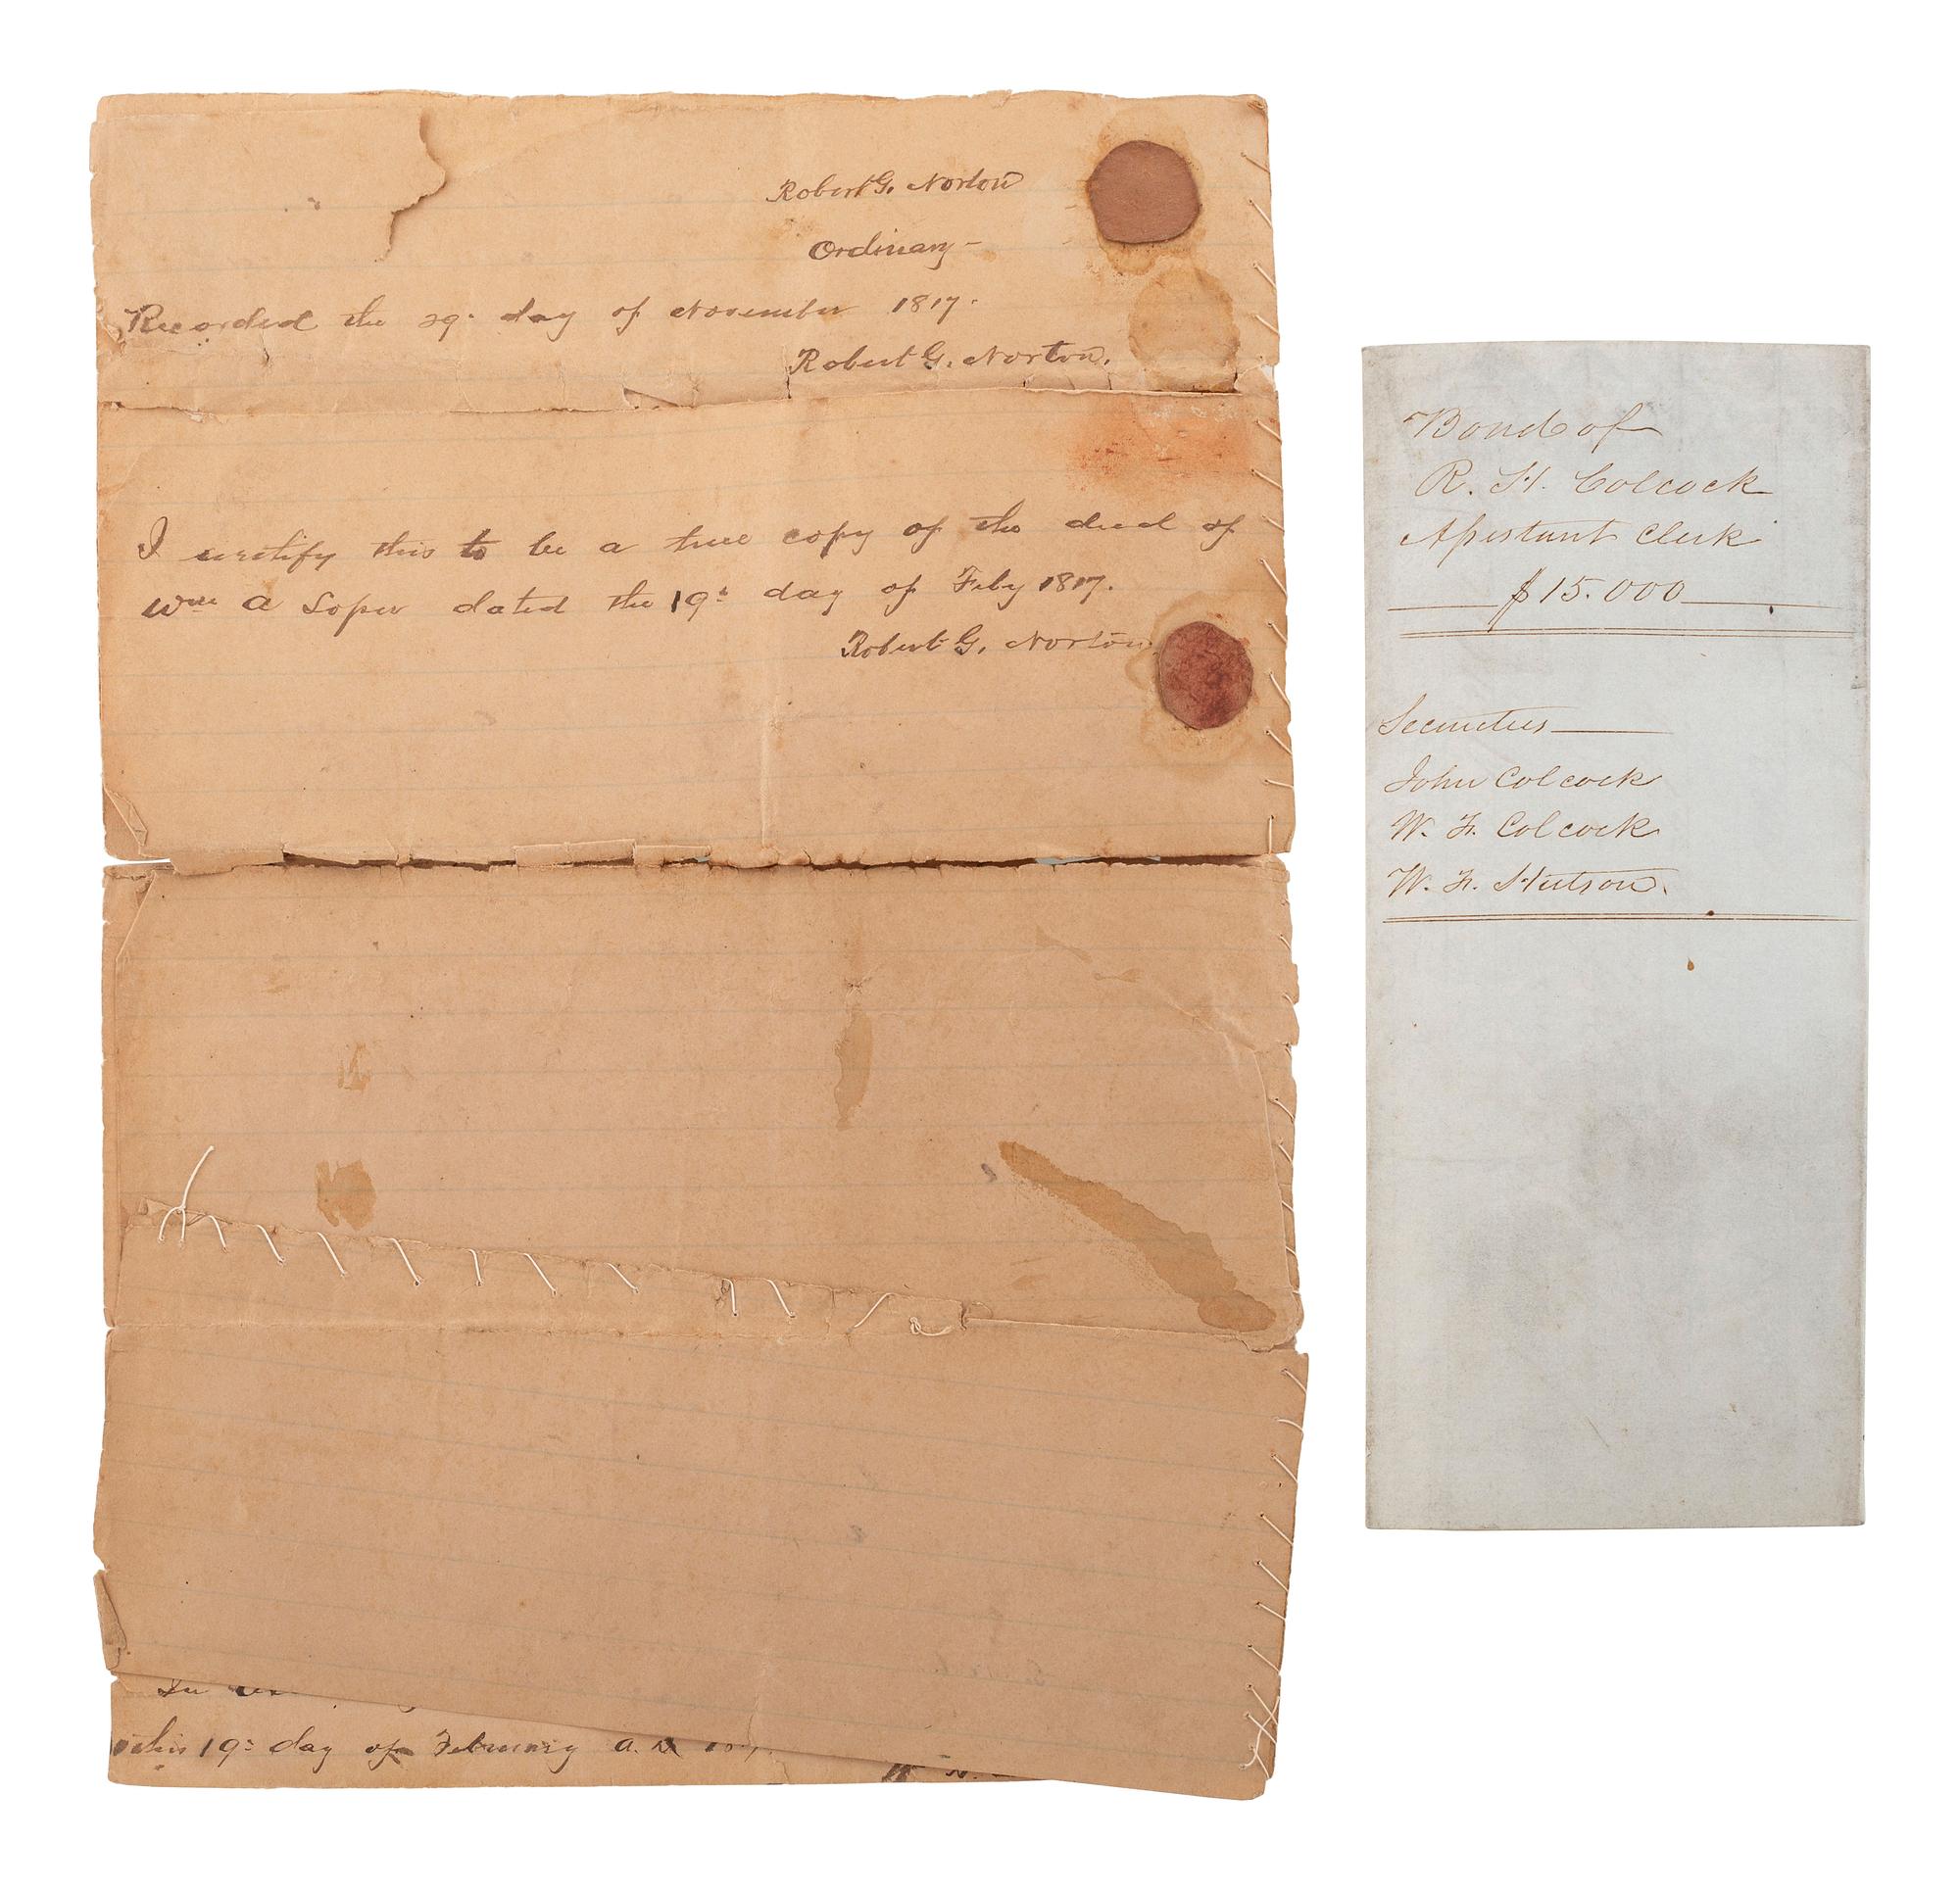 Robert G. Norton
Ordinary -
Recorded the 29. day of November 1817.
Robert G. Norton.
I certify this to be a true copy of the deed of
Wm a Soper dated the 19th day of Feby 1817.
Robert G. Norton
In
this 19th day of February a.D
Bond of
R. H. Colcock
Assistant Clerk
$15.000
Securities
John Colcock
W. F. Colcock
W. F. Hutson.